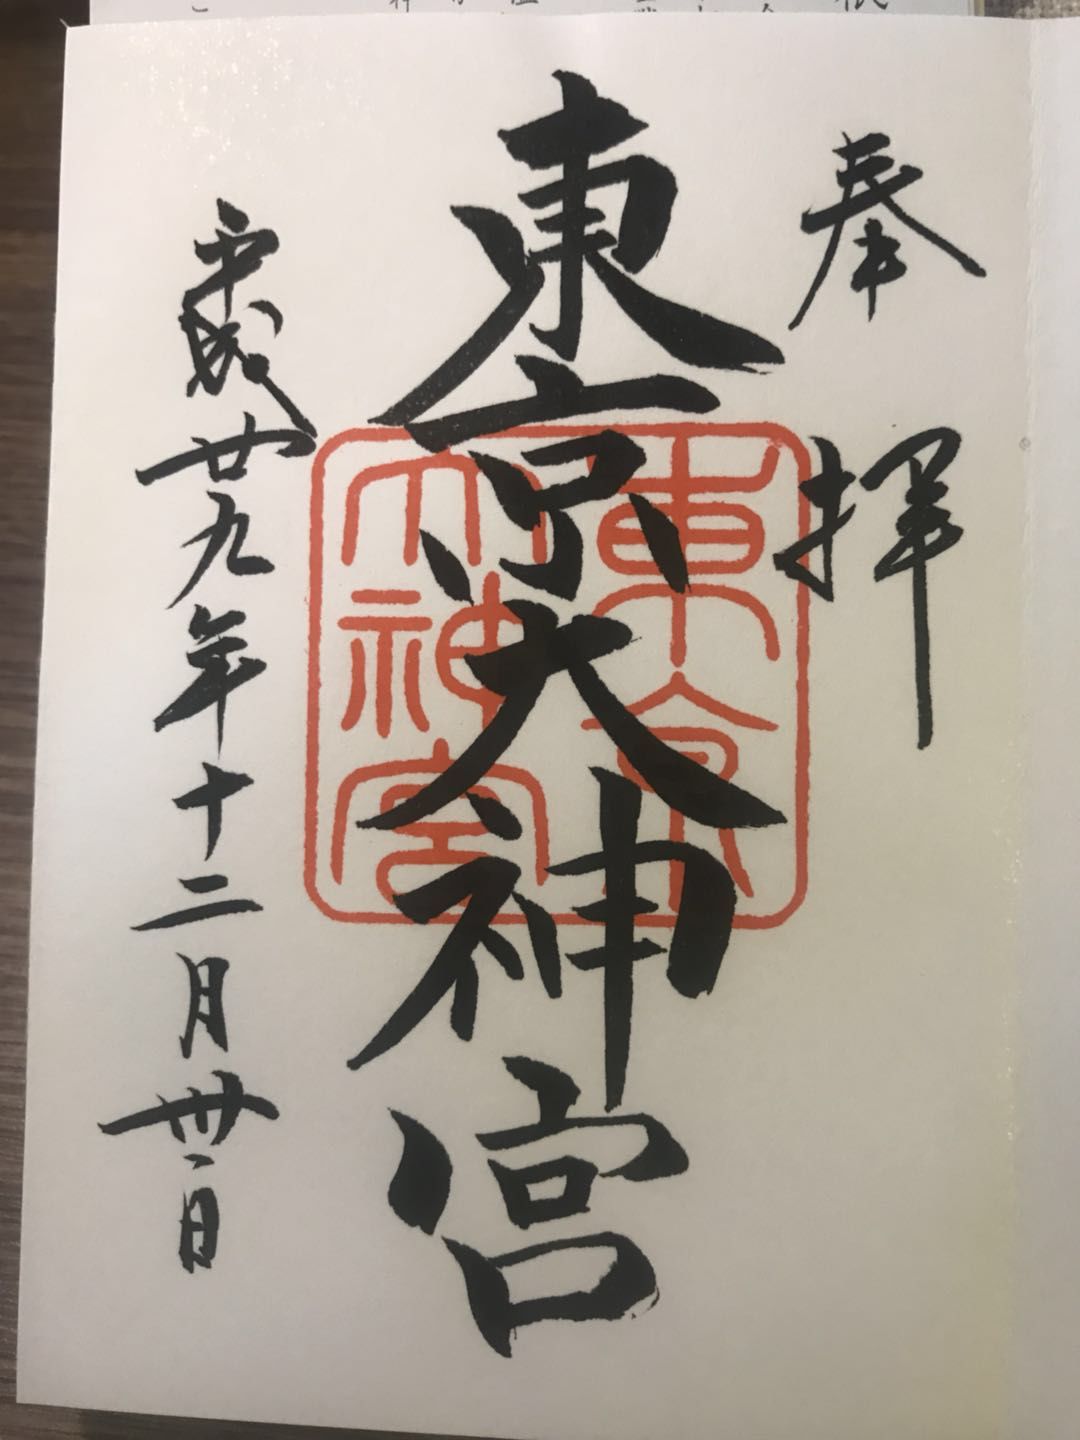 奉拝
東京大神宮
東京
大神宮
平成廿九年十二月丗一日